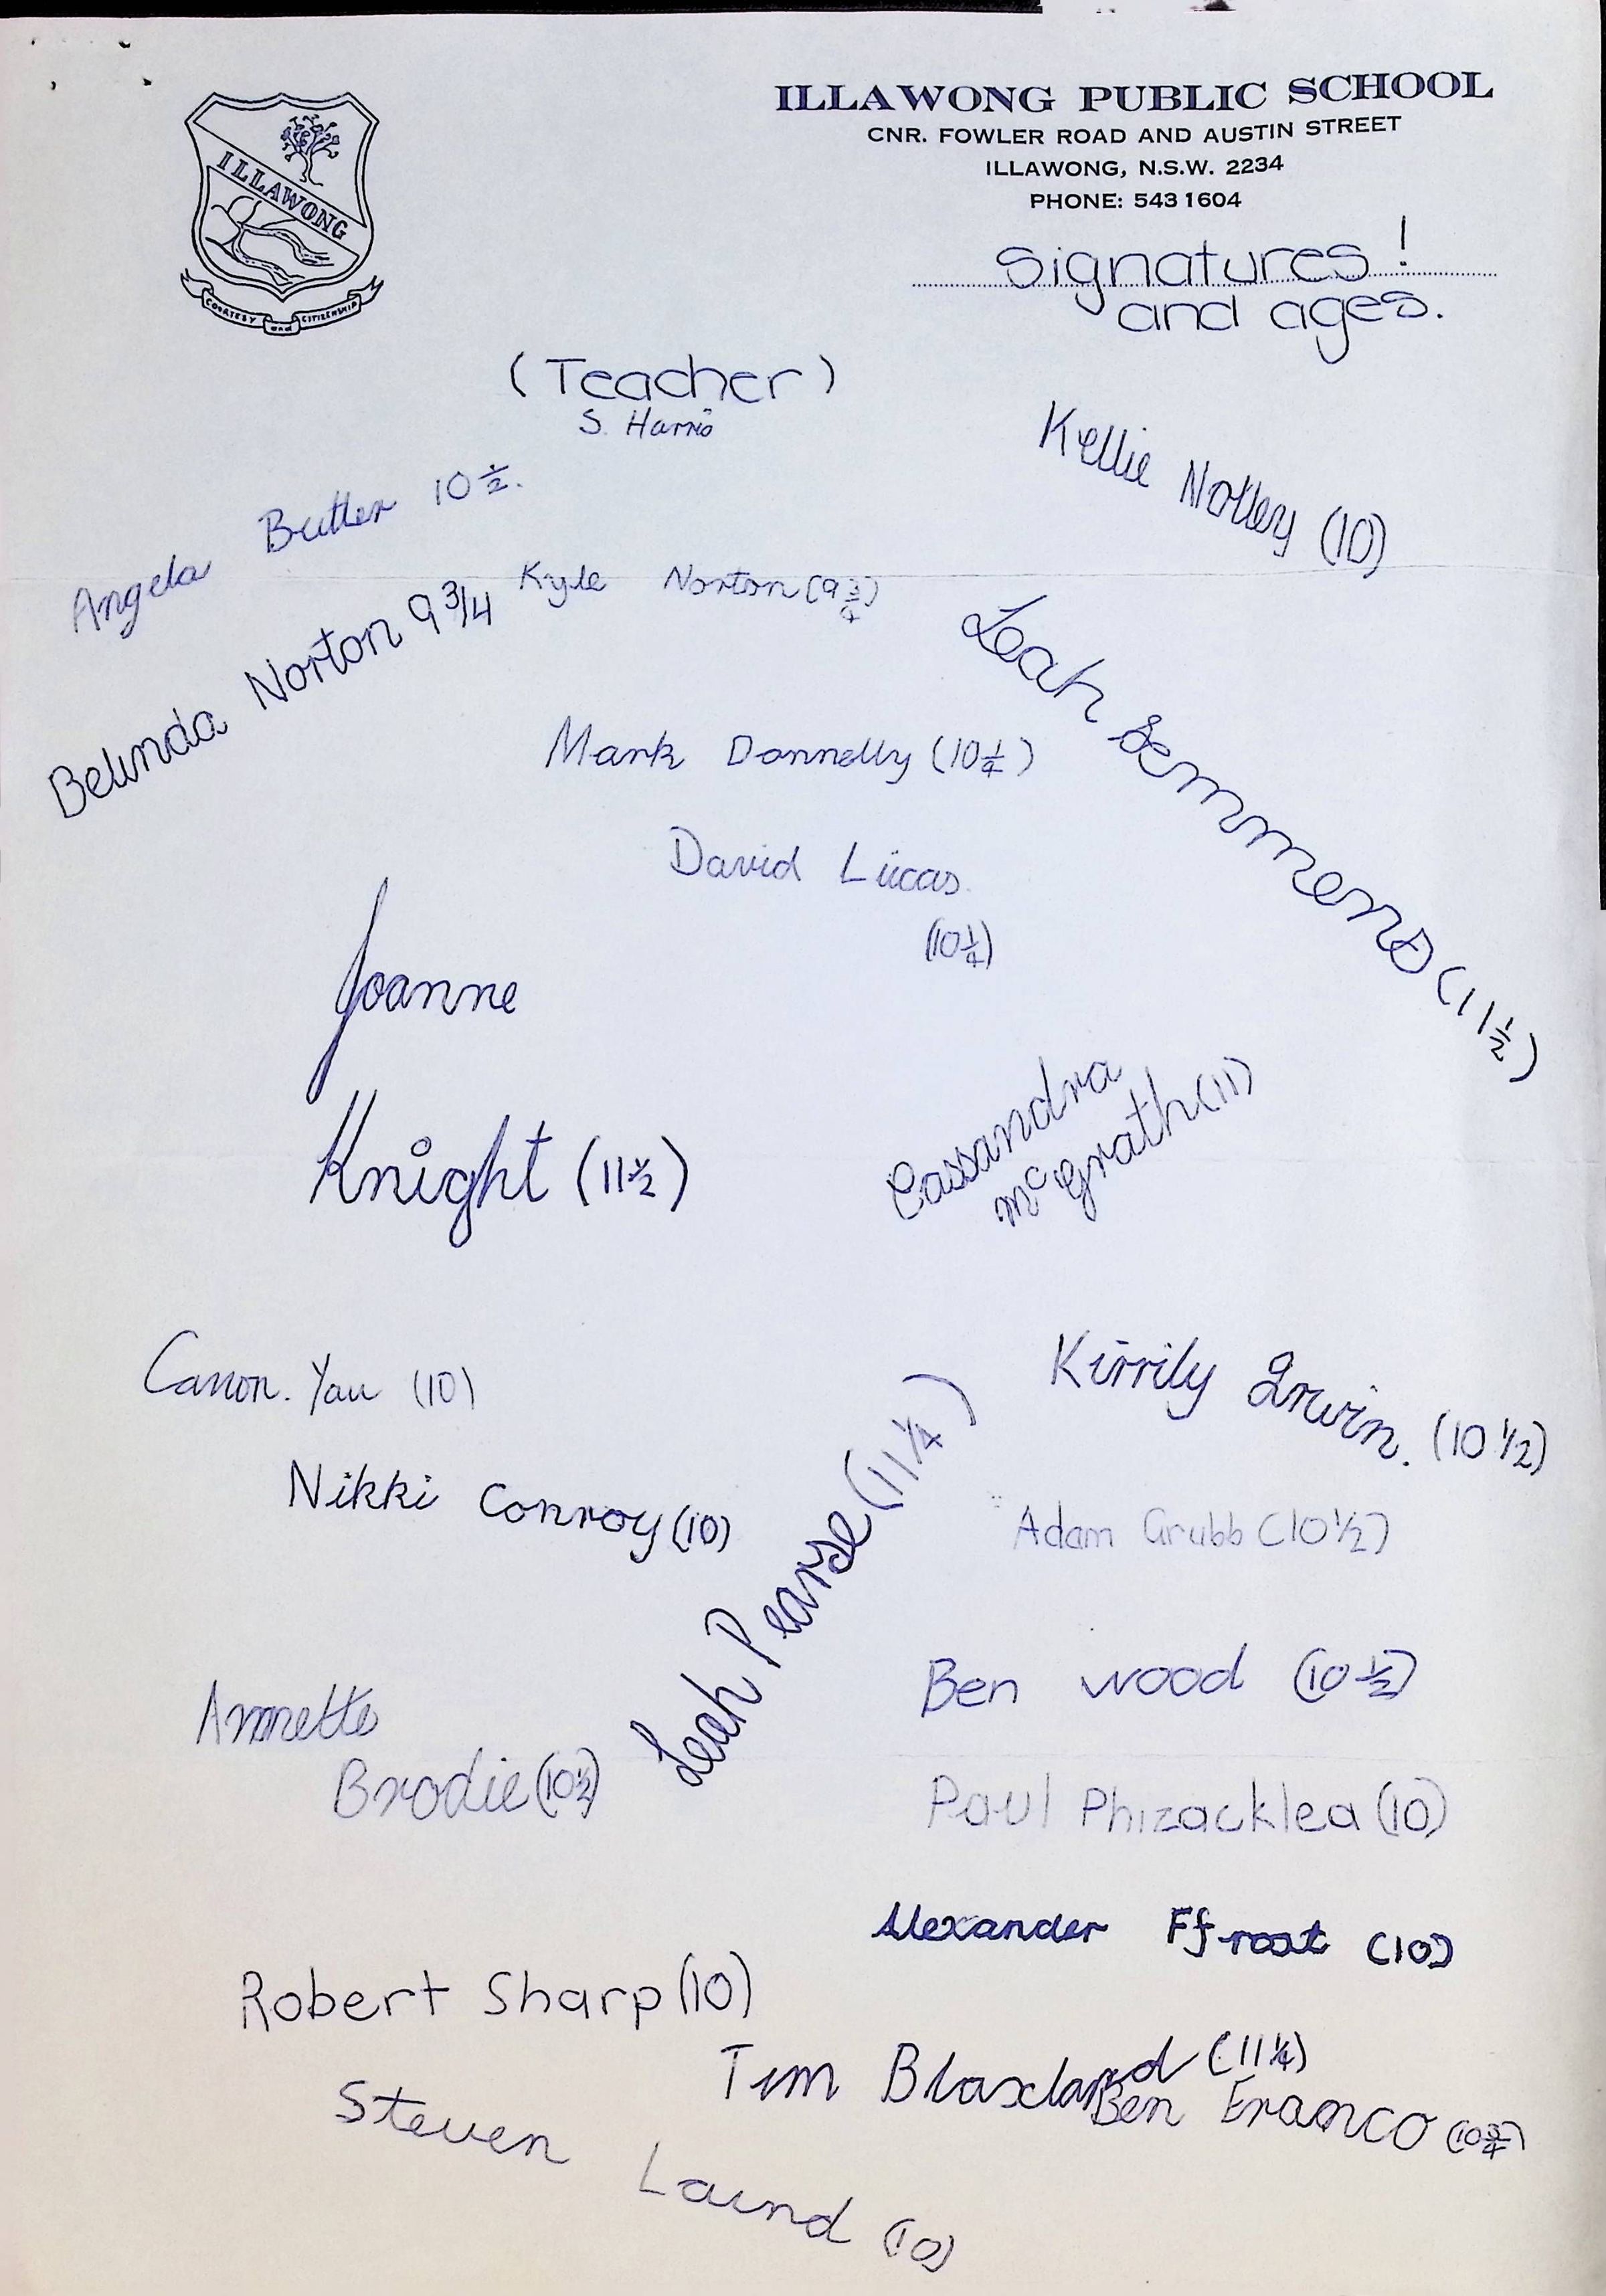 ILLAWONG PUBLIC SCHOOL
CNR. FOWLER ROAD AND AUSTIN STREET
ILLAWONG, N.S.W. 2234
PHONE: 543 1604
ILLAWONG
COURTESY and CITIZENSHIP
signatures!
and ages.
(Teacher)
S. Harris
Kellie Notley (10)
Angela Butler 10 ½.
Belinda Norton 9 3/4
Kyle Norton (9 ¾)
Leah Semmens (11 ½)
Mark Donnelly (10 ¼)
David Lucas
(10 ¼)
Joanne
Knight (11 ½)
Cassandra
McGrath (11)
Canon. Yau (10)
Kirrily Irwin. (10 ½)
Nikki Conroy (10)
Leah Pearse (11 ¼)
Adam Grubb (10 ½)
Ben wood (10 ½)
Annette
Brodie (10 ½)
Paul Phizacklea (10)
Alexander Ffrost (10)
Robert Sharp (10)
Tim Blaxland (11 ¼)
Ben Franco (10 ¾)
Steven Laund (10)